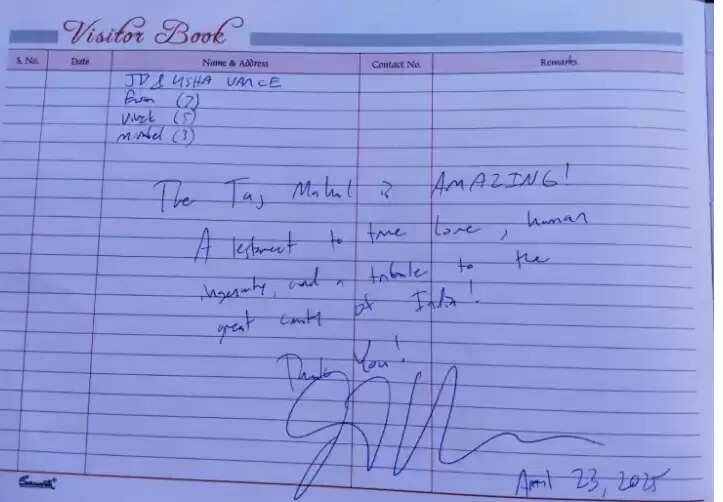 Visitor Book
S. No. Date Name & Address Contact No. Remarks
JD & USHA VANCE
Ewan (7)
Vivek (5)
Mirabel (3)
The Taj Mahal is AMAZING!
A testament to true love, human
ingenuity, and a tribute to the
great country of India!
Thank You!
April 23, 2025